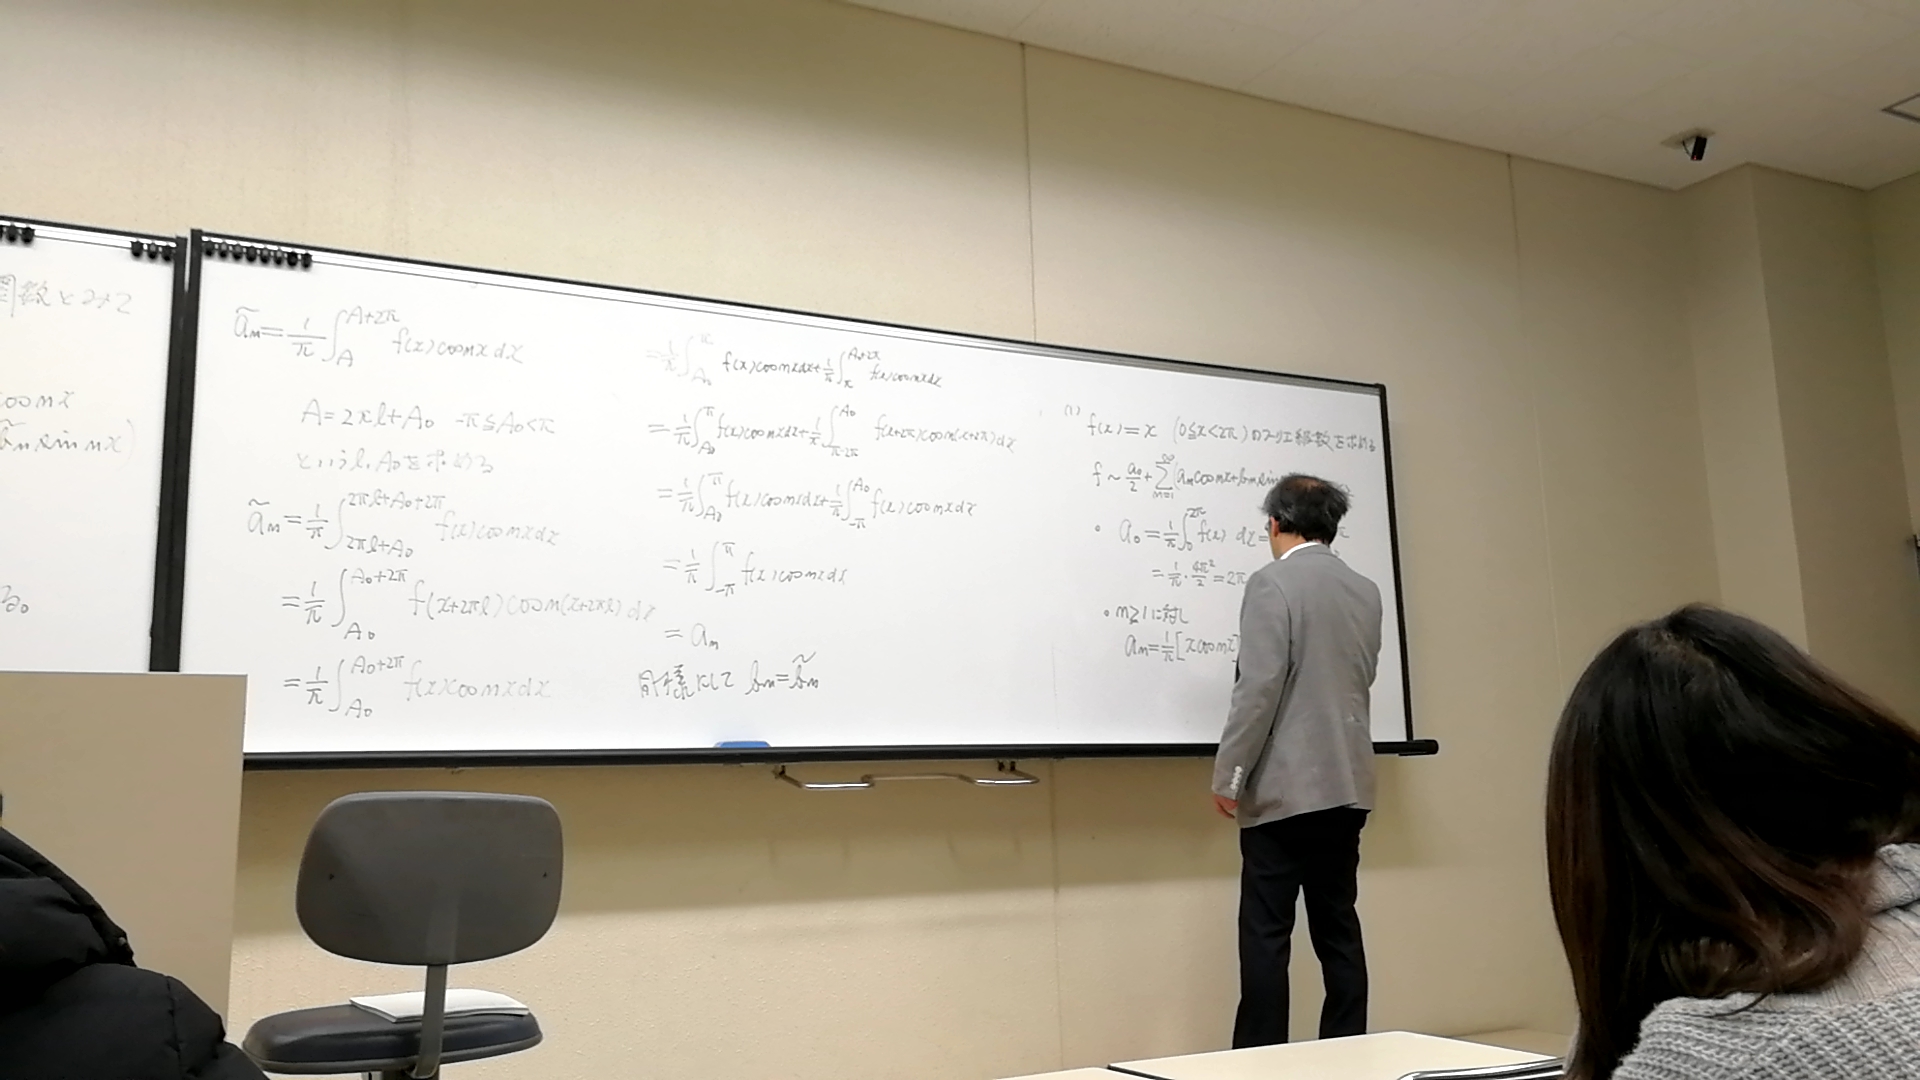 関数とみて
cos nx
b̃n sin nx)
ão
ãn = 1/π ∫_A^{A+2π} f(x) cos nx dx
A = 2πl + A₀  -π ≦ A₀ < π
というl, A₀を求める
ãn = 1/π ∫_{2πl+A₀}^{2πl+A₀+2π} f(x) cos nx dx
= 1/π ∫_{A₀}^{A₀+2π} f(x+2πl) cos n(x+2πl) dx
= 1/π ∫_{A₀}^{A₀+2π} f(x) cos nx dx
= 1/π ∫_{A₀}^{π} f(x) cos nx dx + 1/π ∫_π^{A₀+2π} f(x) cos nx dx
= 1/π ∫_{A₀}^{π} f(x) cos nx dx + 1/π ∫_{π-2π}^{A₀} f(x+2π) cos n(x+2π) dx
= 1/π ∫_{A₀}^{π} f(x) cos nx dx + 1/π ∫_{-π}^{A₀} f(x) cos nx dx
= 1/π ∫_{-π}^{π} f(x) cos nx dx
= an
同様にして bn = b̃n
(1) f(x) = x (0≦x<2π) のフーリエ級数を求める
f ~ a₀/2 + Σ_{n=1}^{∞} (an cos nx + bn sin
• a₀ = 1/π ∫_0^{2π} f(x) dx =
= 1/π · 4π²/2 = 2π
• n≧1に対し
an = 1/π [x cos nx]